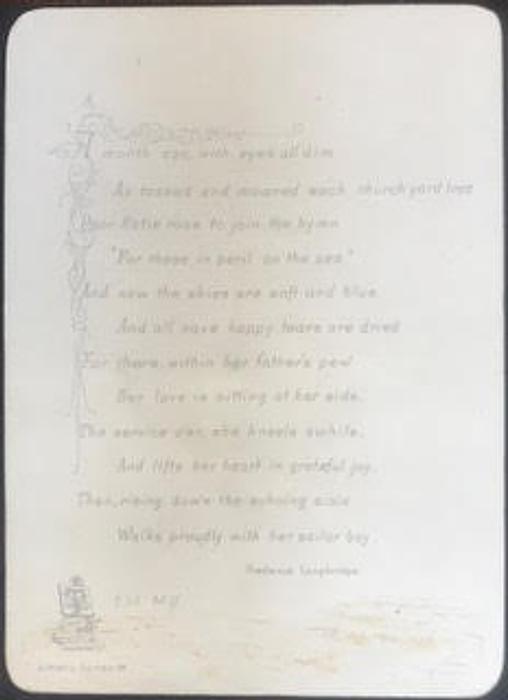 A month ago, with eyes all dim
As tossed and moaned each churchyard tree
Poor Katie rose to join the hymn
"For those in peril on the sea"
And now the skies are soft and blue
And all save happy tears are dried
For there, within her father's pew
Her love is sitting at her side.
The service o'er, she kneels awhile,
And lifts her heart in grateful joy,
Then, rising down the echoing aisle
Walks proudly with her sailor boy.
Frederick Langbridge